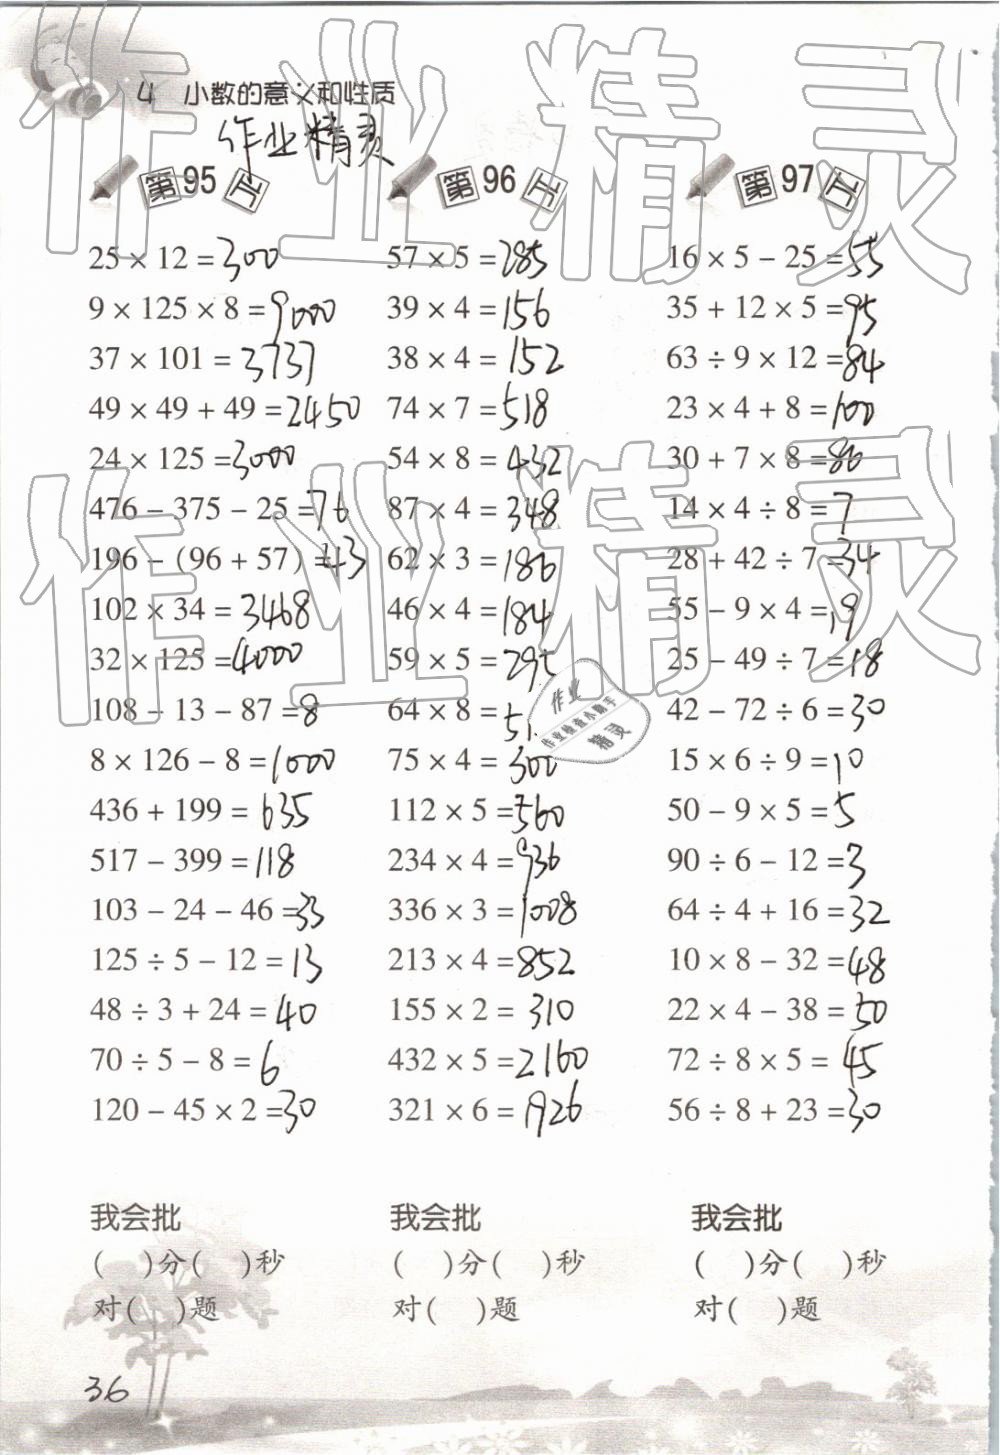 4 小数的意义和性质
作业精灵
第95天
25 × 12 = 300
9 × 125 × 8 = 9000
37 × 101 = 3737
49 × 49 + 49 = 2450
24 × 125 = 3000
476 − 375 − 25 = 76
196 − (96 + 57) = 43
102 × 34 = 3468
32 × 125 = 4000
108 − 13 − 87 = 8
8 × 126 − 8 = 1000
436 + 199 = 635
517 − 399 = 118
103 − 24 − 46 = 33
125 ÷ 5 − 12 = 13
48 ÷ 3 + 24 = 40
70 ÷ 5 − 8 = 6
120 − 45 × 2 = 30
我会批
( )分( )秒
对( )题
第96天
57 × 5 = 285
39 × 4 = 156
38 × 4 = 152
74 × 7 = 518
54 × 8 = 432
87 × 4 = 348
62 × 3 = 186
46 × 4 = 184
59 × 5 = 295
64 × 8 =
75 × 4 = 300
112 × 5 = 560
234 × 4 = 936
336 × 3 = 1008
213 × 4 = 852
155 × 2 = 310
432 × 5 = 2160
321 × 6 = 1926
我会批
( )分( )秒
对( )题
第97天
16 × 5 − 25 = 55
35 + 12 × 5 = 95
63 ÷ 9 × 12 = 84
23 × 4 + 8 = 100
30 + 7 × 8 = 86
14 × 4 ÷ 8 = 7
28 + 42 ÷ 7 = 34
55 − 9 × 4 = 19
25 − 49 ÷ 7 = 18
42 − 72 ÷ 6 = 30
15 × 6 ÷ 9 = 10
50 − 9 × 5 = 5
90 ÷ 6 − 12 = 3
64 ÷ 4 + 16 = 32
10 × 8 − 32 = 48
22 × 4 − 38 = 50
72 ÷ 8 × 5 = 45
56 ÷ 8 + 23 = 30
我会批
( )分( )秒
对( )题
36
作业精灵
作业精灵
作业
作业检查小助手
精灵